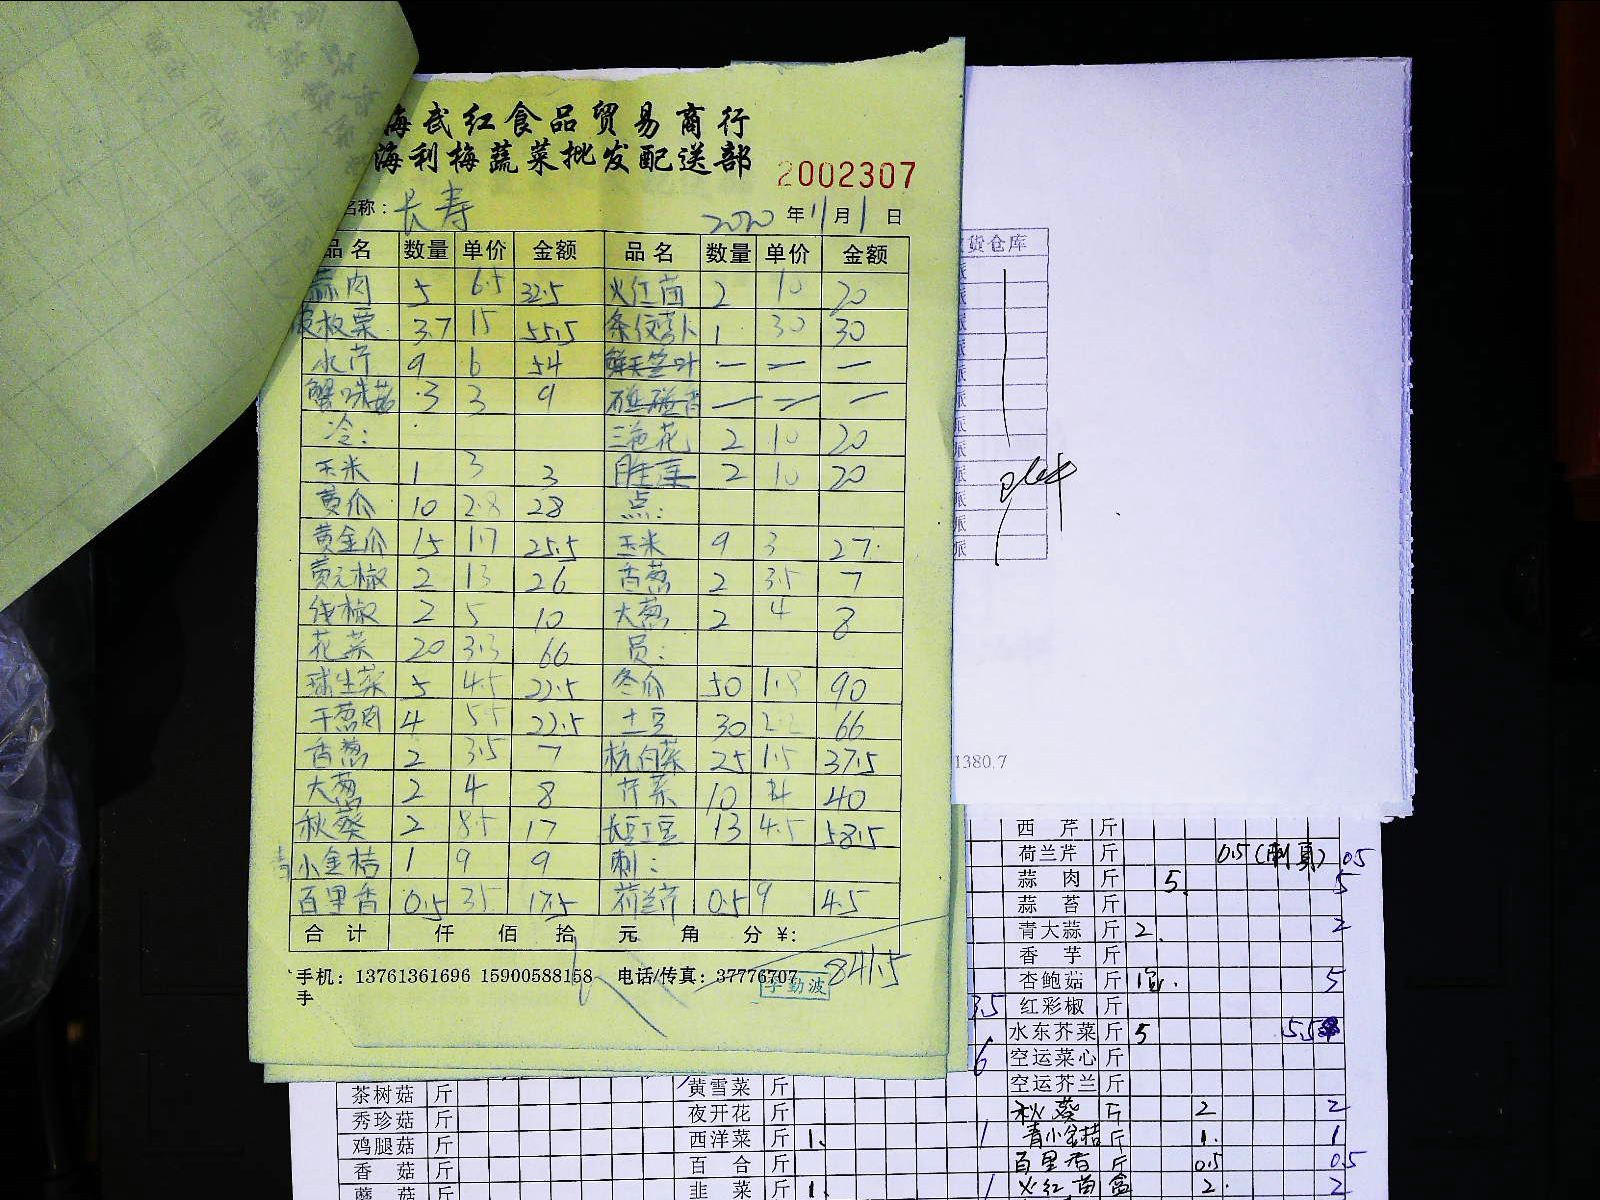 海武红食品贸易商行
海利梅蔬菜批发配送部
2002307
名称：长寿 2020年11月1日
品名 数量 单价 金额 品名 数量 单价 金额
蒜肉 5 6.5 32.5 火红苗 2 10 20
板栗 3.7 15 55.5 条纹萝卜 1 30 30
水芹 9 6 54 — — —
蟹味菇 3 3 9 碰碰香 — — —
冷： 三色花 2 10 20
玉米 1 3 3 2 10 20
黄瓜 10 2.8 28 点：
黄金瓜 15 1.7 25.5 玉米 9 3 27
黄元椒 2 13 26 香葱 2 3.5 7
线椒 2 5 10 大葱 2 4 8
花菜 20 3.3 66 员：
球生菜 5 4.5 22.5 冬瓜 50 1.8 90
干葱肉 4 5.5 22.5 土豆 30 2.2 66
香葱 2 3.5 7 杭白菜 25 1.5 37.5
大葱 2 4 8 芹菜 10 4 40
秋葵 2 8.5 17 长豇豆 13 4.5 58.5
青小金桔 1 9 9 刺：
百里香 0.5 35 17.5 荷兰芹 0.5 9 4.5
合计 仟 佰 拾 元 角 分 ¥:
841.5
手机：13761361696 15900588158 电话/传真：37776707
手
李勤波
货仓库
派
派
派
派
派
派
派
派
派
派
派
派
1380.7
西芹 斤
荷兰芹 斤 0.5(刺真) 0.5
蒜肉 斤 5 5
蒜苔 斤
青大蒜 斤 2 2
香芋 斤
杏鲍菇 斤 5
3.5 红彩椒 斤
水东芥菜 斤 5 5.5
6 空运菜心 斤
空运芥兰 斤
秋葵 斤 2 2
青小金桔 斤 1 1
百里香 斤 0.5 0.5
火红苗 盒 2 2
茶树菇 斤 黄雪菜 斤
秀珍菇 斤 夜开花 斤
鸡腿菇 斤 西洋菜 斤 1 1
香菇 斤 百合 斤
蘑菇 斤 韭菜 斤 1 1